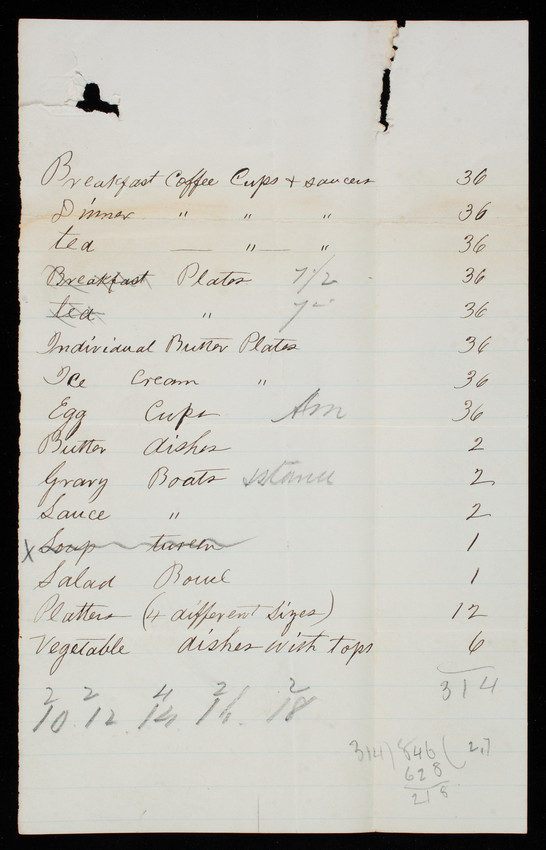 Breakfast Coffee Cups + saucers 36
Dinner " " " 36
tea — " — " 36
Breakfast Plates 7 1/2 36
tea " 7- 36
Individual Butter Plates 36
Ice Cream " 36
Egg Cups 36
Butter dishes 2
Gravy Boats 2
Sauce " 2
X Soup tureen 1
Salad Bowl 1
Platters (4 different sizes) 12
Vegetable dishes with tops 6
314
2 2 4 2 2
10 12 14 16 18
314) 846 ( 2.7
628
218